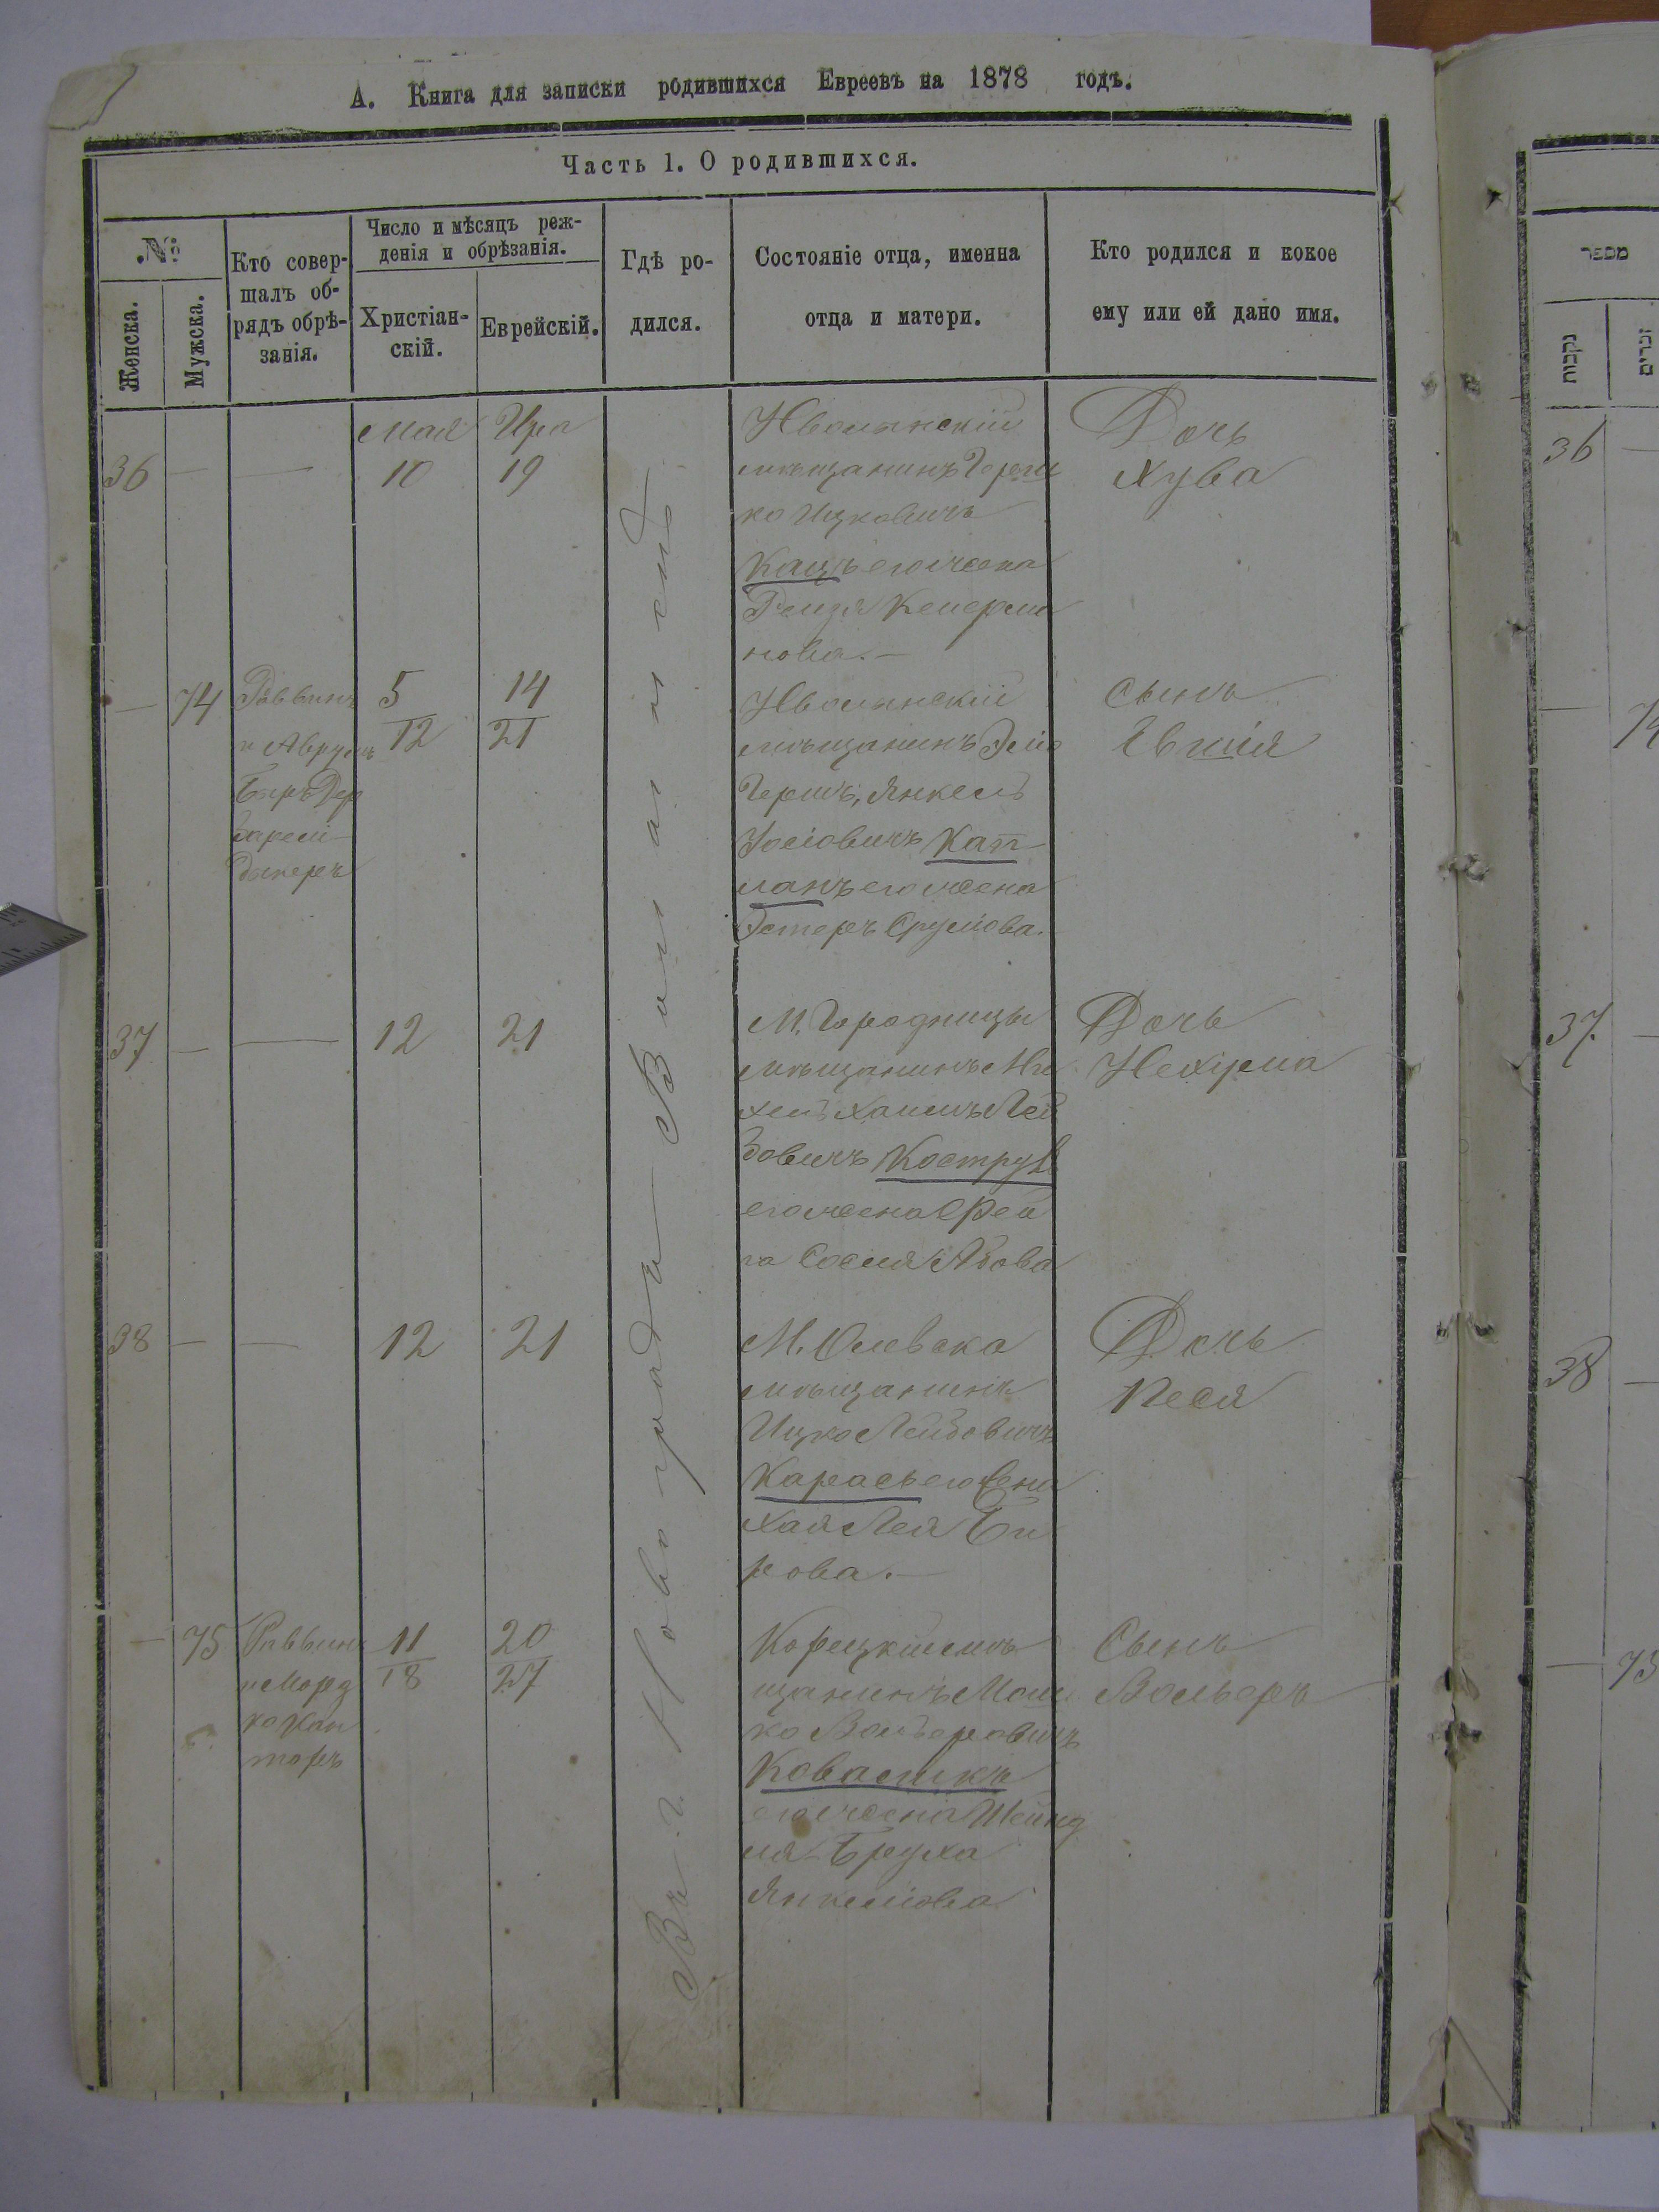 А. Книга для записки родившихся Евреевъ на 1878 годъ.
Часть 1. О родившихся.
№
Женска.
Мужска.
Кто совер-
шалъ об-
рядъ обрѣ-
занія.
Число и мѣсяцъ реж-
денія и обрѣзанія.
Христіан-
скій.
Еврейскій.
Гдѣ ро-
дился.
Состояніе отца, именна
отца и матери.
Кто родился и кокое
ему или ей дано имя.
Въ г. Новоградѣ-Волынскѣ
36 — —
Мая
10
Ира
19
Нволынскій
мѣщанинъ Герш
ко Ицковичъ
Кацъ его жена
Рейзя
нова.—
Дочь
Хува
— 74
Раввинъ
и Аврумъ
Беръ Дер
5
12
14
21
Нволынскій
мѣщанинъ
Гершъ, Янкель
Іосіовичъ Кап
ланъ его жена
Эстеръ Срулова.
Сынъ
37 — —
12
21
М. Городницы
мѣщанинъ Ми
хель Хаимъ Лей
бовичъ Коструб
его жена Фей
га Сося Абова
Дочь
Нехума
38 — —
12
21
М. Олевска
мѣщанинъ
Ицко Лейбовичъ
Карась его жена
Хая Лея Бе
рова.—
Дочь
Песя
— 75
Раввинъ
и Морд
ко Кан
торъ
11
18
20
27
Корецкій мѣ
щанинъ Мош
ко Вольфовичъ
его жена Шейнд
ля-Бруха
Янкелiова
Сынъ
מספר
נקבות
זכרים
36 —
— 74
37. —
38 —
— 75